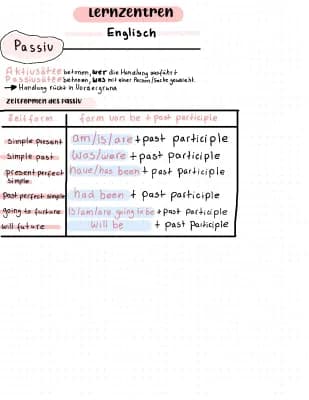 Lernzentren
Englisch
Passiv
Aktivsätze betonen, wer die Handlung ausführt
Passivsätze betonen, was mit einer Person/Sache geschieht.
→ Handlung rückt in Vordergrund
Zeitformen des Passiv
Zeitform form von be + past participle
simple present am/is/are + past participle
simple past was/were + past participle
present perfect simple have/has been + past participle
past perfect simple had been + past participle
going to future is/am/are going to be + past participle
will future will be + past participle